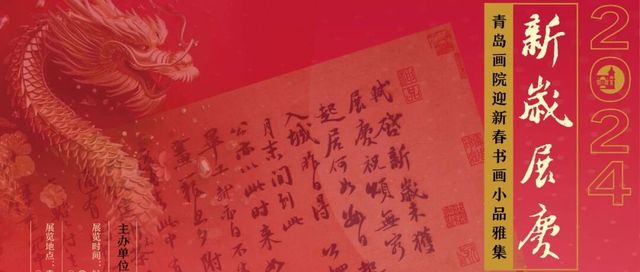 2024
新歲展慶
青岛画院迎新春书画小品雅集
軾啓新歲未獲
展慶祝頌無窮
起居何如數日
入城昨日得
月末間到此
公亦以此時來
畢工
主办单位
展览时间:
展览地点: